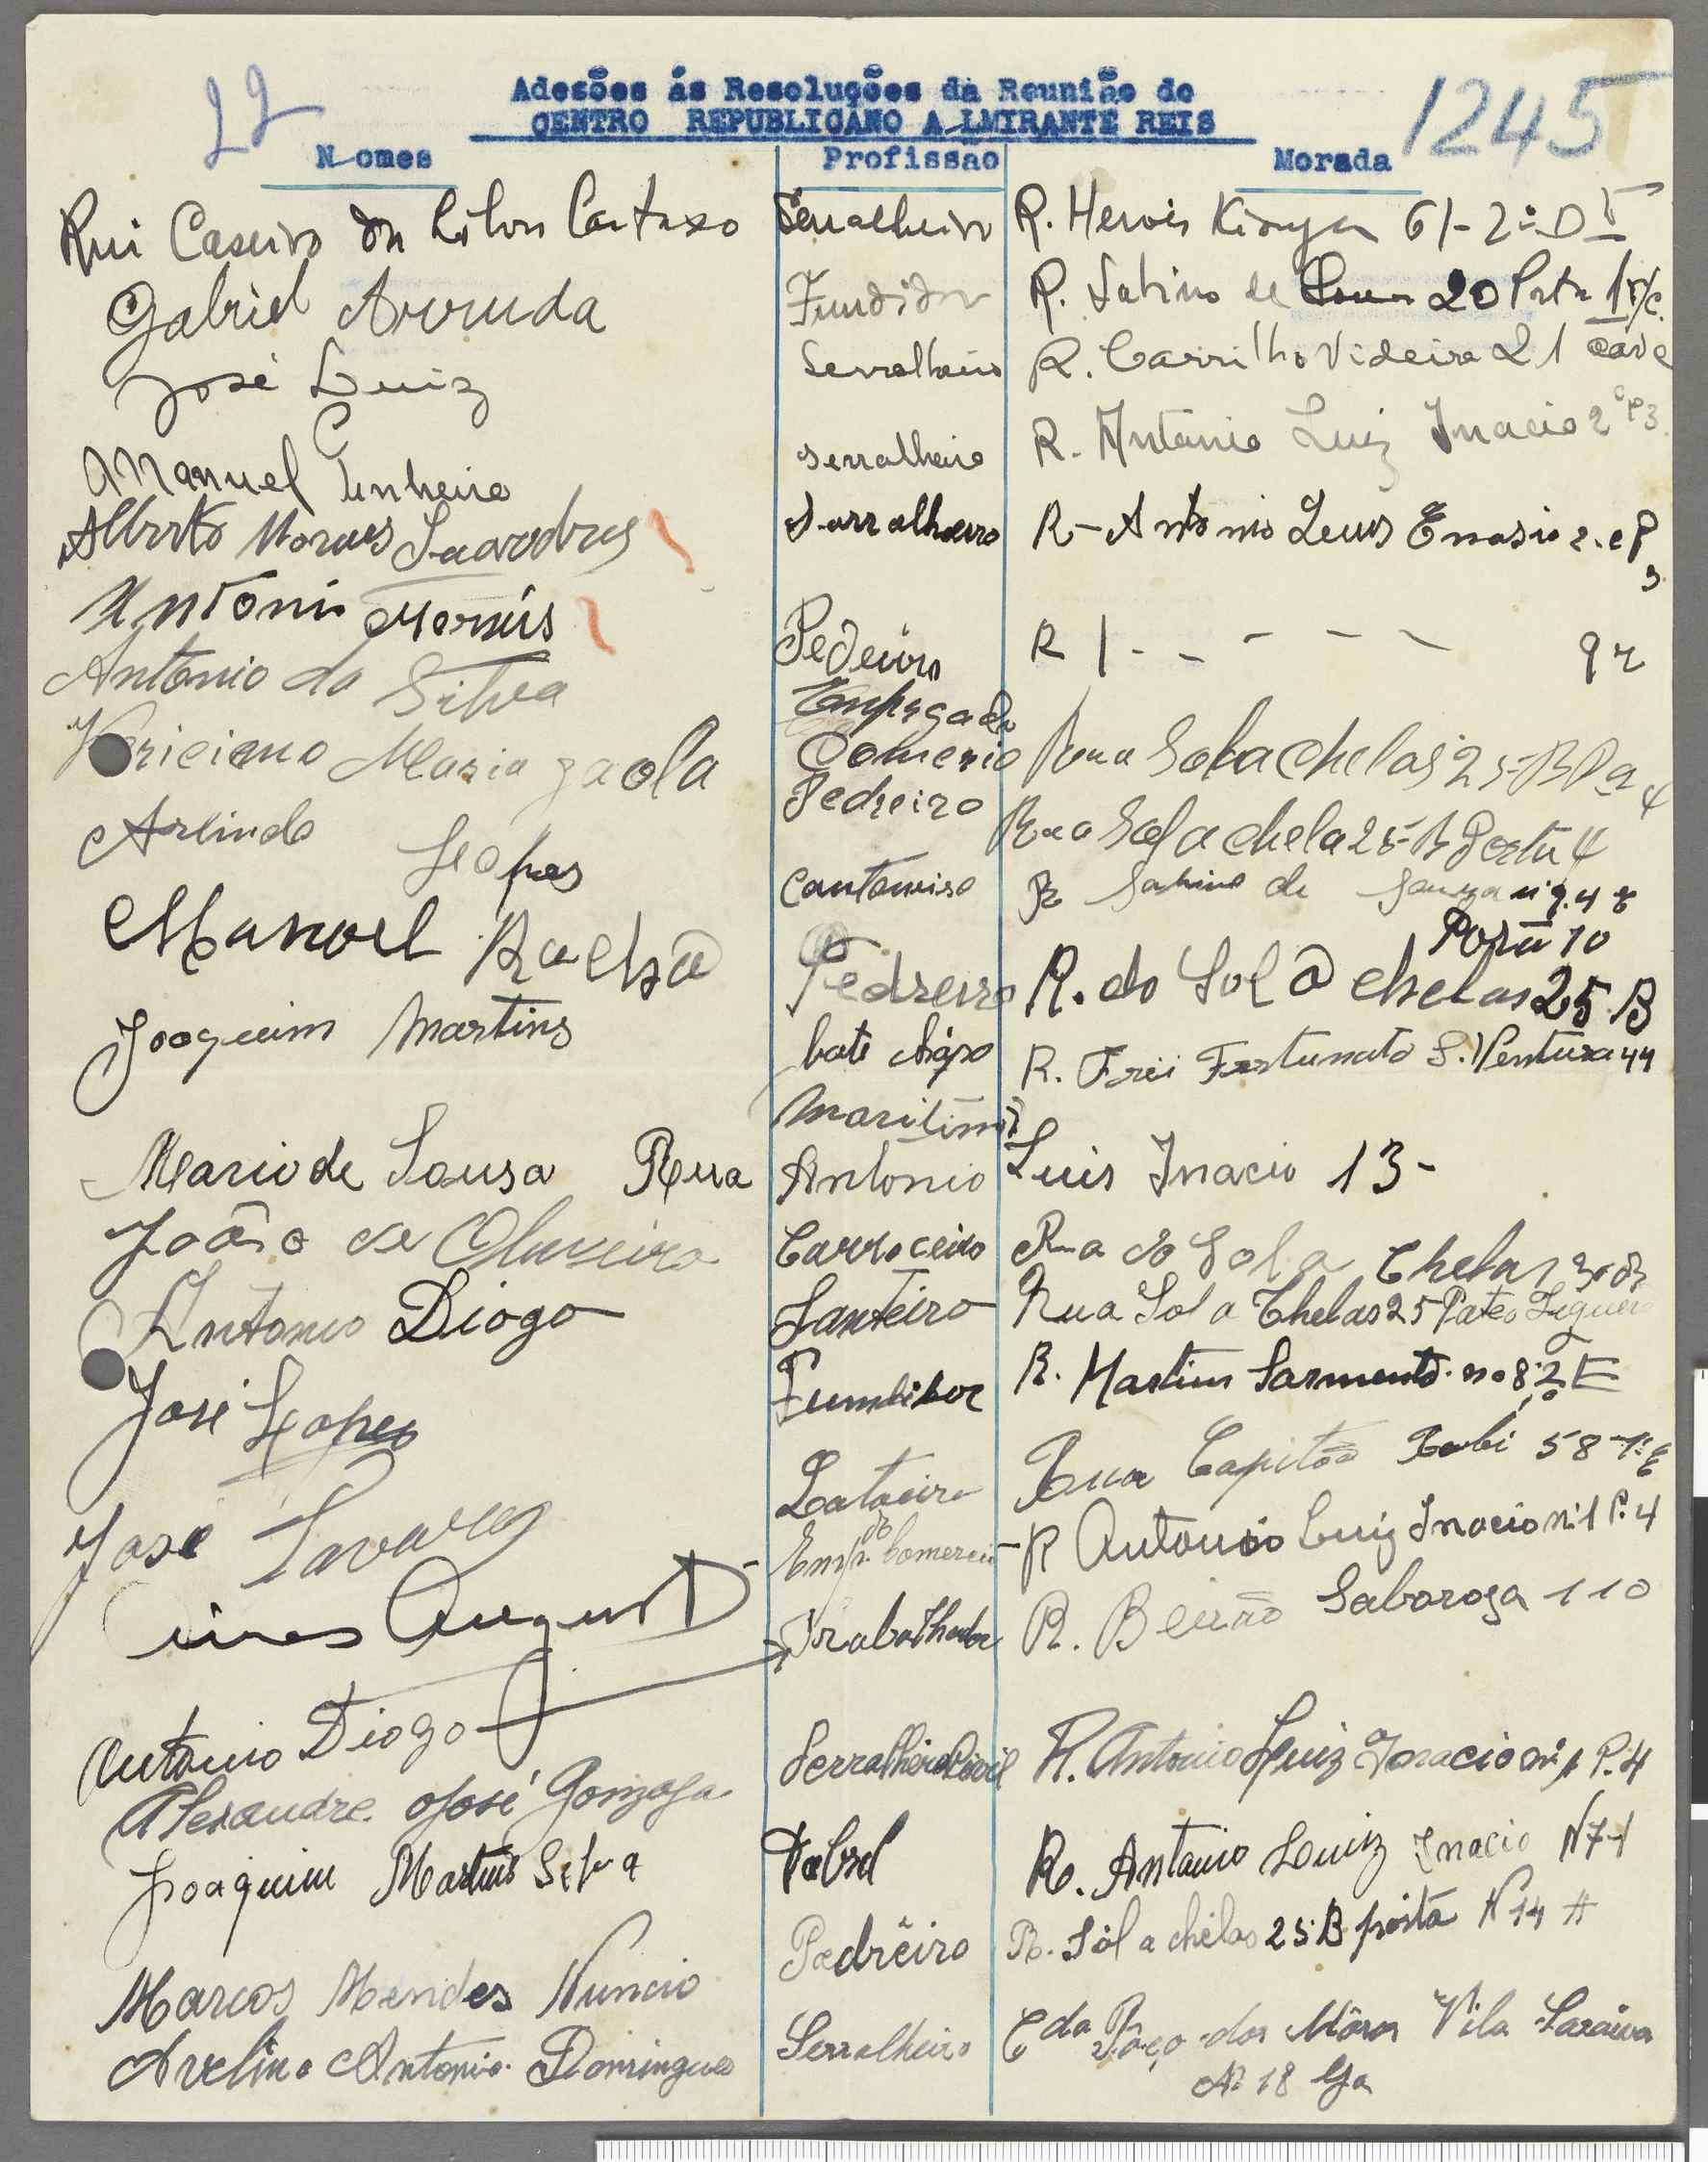 22
1245
Adesões ás Resoluções da Reunião do
CENTRO REPUBLICANO ALMIRANTE REIS
Nomes Profissão Morada
Rui Caseiro da Silva Cartaxo Serralheiro R. Herois Kionga 61-2º Dt
Gabriel Arruda Fundidor R. Sabino de Sousa 20 Porta 1 r/c.
José Luiz Serralheiro R. Carrilho Videira 21 cave
Manuel Pinheiro serralheiro R. Antonio Luiz Inacio 2º P3.
Alberto Moraes Serralheiro R- Antonio Luis Enasio 2. e P 3
Antonio Pedeiro R | - - - - - 92
Antonio da Silva Empregado Comercio Rua Sol a Chelas 25-B Pa 4
Maria Pedreiro Rua Sol a chela 25-B Porta 4
Arlindo Lopes Canteneiro R Sabino de Souza nº 94
Manoel Pedreiro R. do Sol a Chelas 25 B Porta 10
Joaquim Martins bate chapa R. Frei Fortunato S. Ventura 44
Maritimo
Mario de Sousa Rua Antonio Luis Inacio 13-
João de Oliveira Carroceiro Rua do Sol a Chelas
Antonio Diogo Santeiro Rua Sol a Chelas 25 Pateo Figueira
José Lopes Fundidor R. Martins Sarmento. no 8 2º E
José Tavares Latoeiro Rua Capitão Roby 58-1º E
August Emp. do Comercio - R Antonio Luiz Inacio nº 1 P. 4
Antonio Diogo Trabalhador R. Beirão Saboroga 110
Alexandre José Gonzaga Serralheiro Civil R. Antonio Luiz Inacio nº 1 P. 4
Joaquim Martins Silva R. Antonio Luiz Inacio N 7-1
Marcos Mendes Nuncio Pedrêiro R. Sól a chélas 25 B porta N 14 A
Avelino Antonio Domingues Serralheiro Cda Poço dos Môros Vila Saraiva
Nº 18 Ga